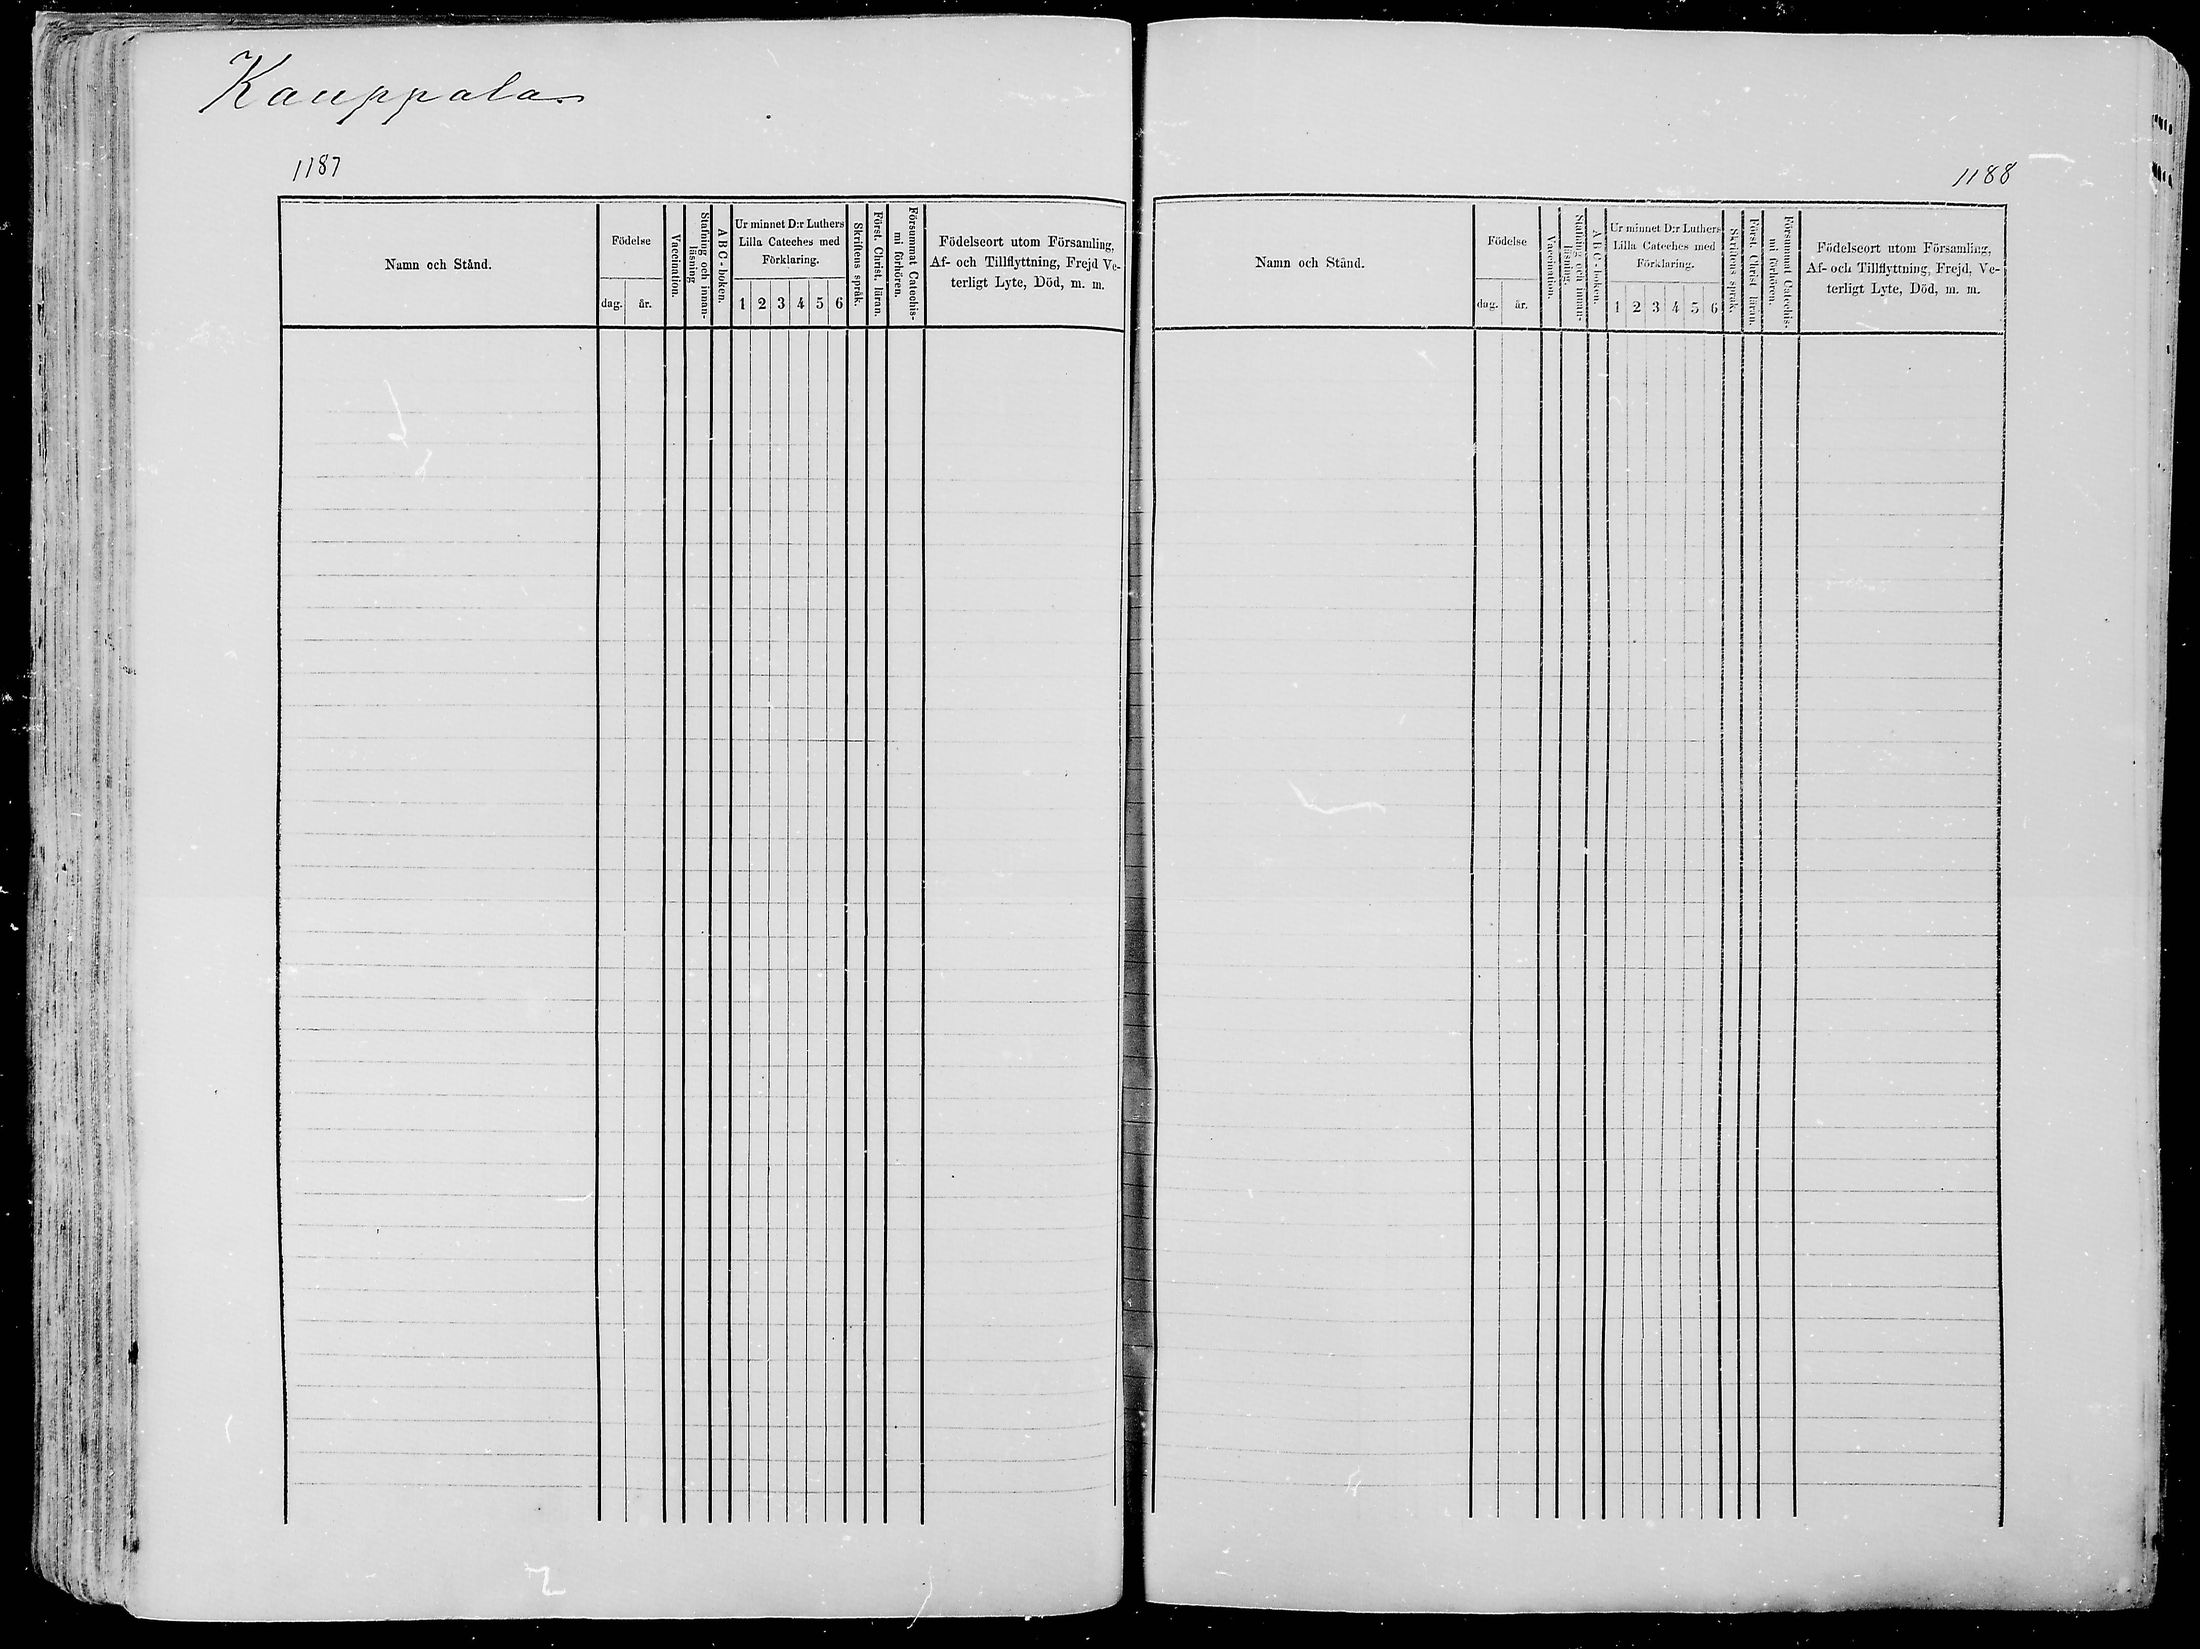 Kauppala
1187
Namn och Stånd.
Födelse
dag.
år.
Vaccination.
Stafning och innan-
läsning
A B C - boken.
Ur minnet D:r Luthers
Lilla Cateches med
Förklaring.
1 2 3 4 5 6
Skriftens språk.
Först. Christ. läran.
Försummat Catechis-
mi förhören.
Födelseort utom Församling,
Af- och Tillflyttning, Frejd Ve-
terligt Lyte, Död, m. m.
1188
Namn och Stånd.
Födelse
dag.
år.
Vaccination.
Stafning och innan-
läsning.
A B C - boken.
Ur minnet D:r Luthers
Lilla Cateches med
Förklaring.
1 2 3 4 5 6
Skriftens språk.
Först. Christ läran.
Försummat Catechis-
mi förhören.
Födelseort utom Församling,
Af- och Tillflyttning, Frejd, Ve-
terligt Lyte, Död, m. m.